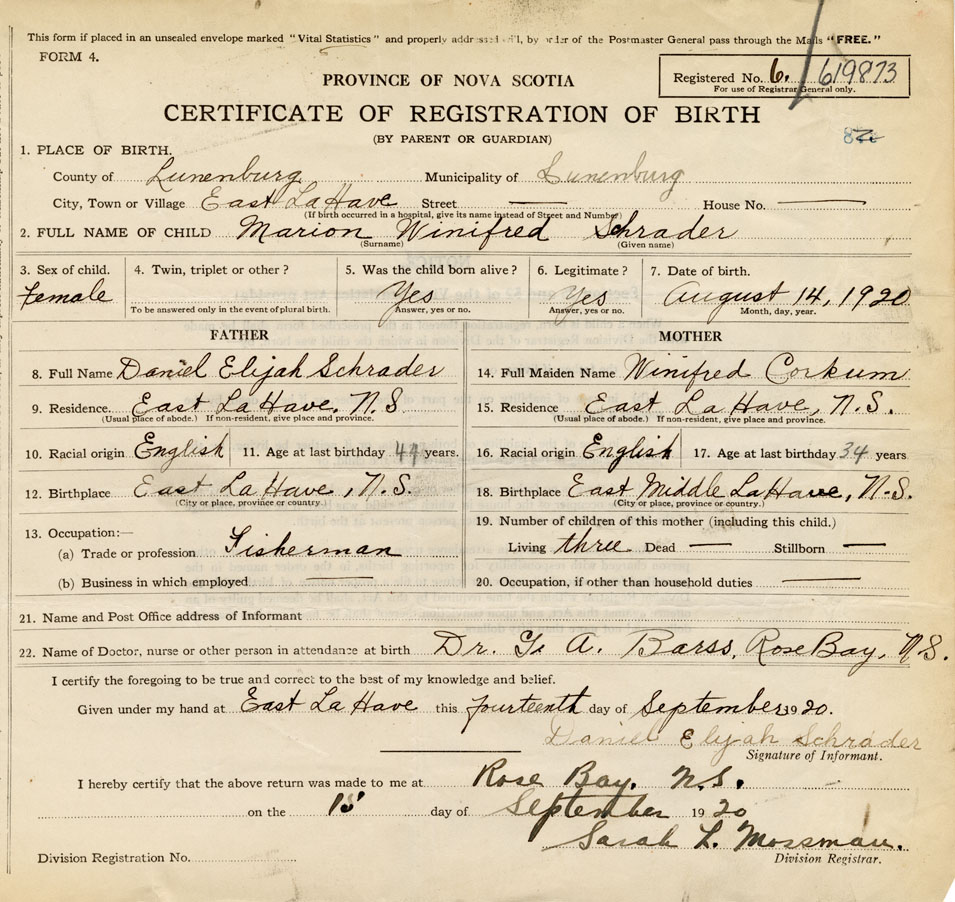 This form if placed in an unsealed envelope marked "Vital Statistics" and properly addressed will, by order of the Postmaster General pass through the Mails "FREE."
FORM 4.
Registered No. 6. 619873
For use of Registrar General only.
PROVINCE OF NOVA SCOTIA
CERTIFICATE OF REGISTRATION OF BIRTH
(BY PARENT OR GUARDIAN)
1. PLACE OF BIRTH.
County of Lunenburg Municipality of Lunenburg
City, Town or Village East LaHave Street — House No. —
(If birth occurred in a hospital, give its name instead of Street and Number)
2. FULL NAME OF CHILD Marion Winifred Schrader
(Surname) (Given name)
3. Sex of child. 4. Twin, triplet or other? 5. Was the child born alive? 6. Legitimate? 7. Date of birth.
Female Yes Yes August 14, 1920
To be answered only in the event of plural birth. Answer, yes or no. Answer, yes or no. Month, day, year.
FATHER MOTHER
8. Full Name Daniel Elijah Schrader 14. Full Maiden Name Winifred Corkum
9. Residence. East LaHave, N.S 15. Residence East LaHave, N.S.
(Usual place of abode.) If non-resident, give place and province. (Usual place of abode.) If non-resident, give place and province.
10. Racial origin English 11. Age at last birthday years. 16. Racial origin English 17. Age at last birthday 34 years
12. Birthplace East LaHave, N.S. 18. Birthplace East Middle LaHave, N.S.
(City or place, province or country.) (City or place, province or country.)
13. Occupation:— 19. Number of children of this mother (including this child.)
(a) Trade or profession Fisherman Living three Dead — Stillborn —
(b) Business in which employed — 20. Occupation, if other than household duties —
21. Name and Post Office address of Informant
22. Name of Doctor, nurse or other person in attendance at birth Dr. G. A. Barss, Rose Bay, N.S.
I certify the foregoing to be true and correct to the best of my knowledge and belief.
Given under my hand at East LaHave this fourteenth day of September 1920.
Daniel Elijah Schrader
Signature of Informant.
I hereby certify that the above return was made to me at Rose Bay. N.S.
on the 15 day of September 1920
Sarah L. Mossman.
Division Registration No. Division Registrar.